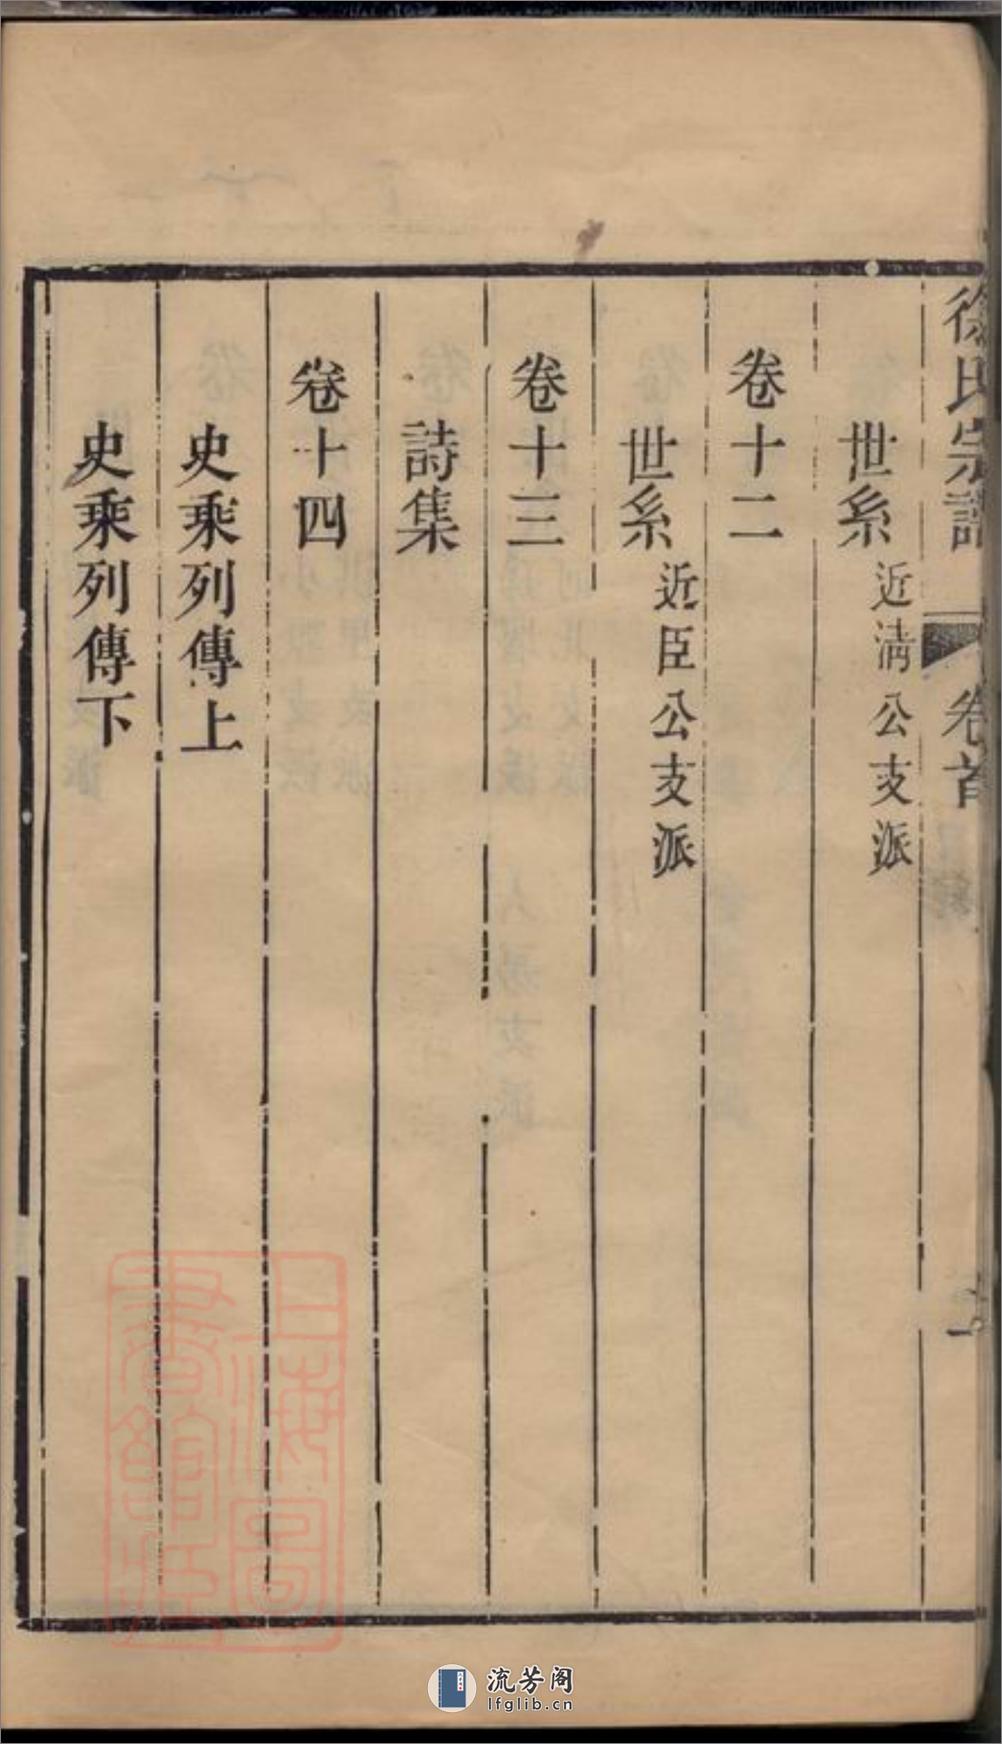 徐氏宗譜
卷首
世系 近淸公支派
卷十二
世系 近臣公支派
卷十三
詩集
卷十四
史乘列傳上
史乘列傳下
上海圖書館藏
流芳阁
lfglib.cn